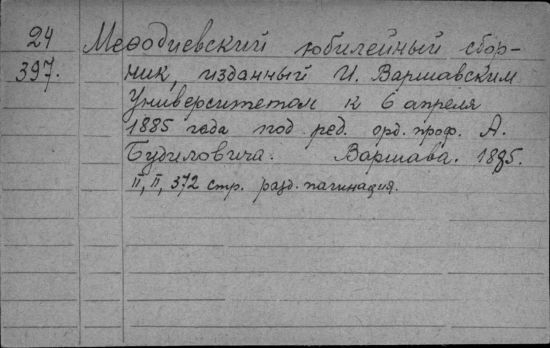 24 Меѳодиевский юбилейный сбор-
397. ник, изданный И. Варшавским
Университетом к 6 апреля
1885 года под ред. орд. проф. А.
Будиловича. Варшава. 1885.
II, II, 372 стр. разд. пагинация.